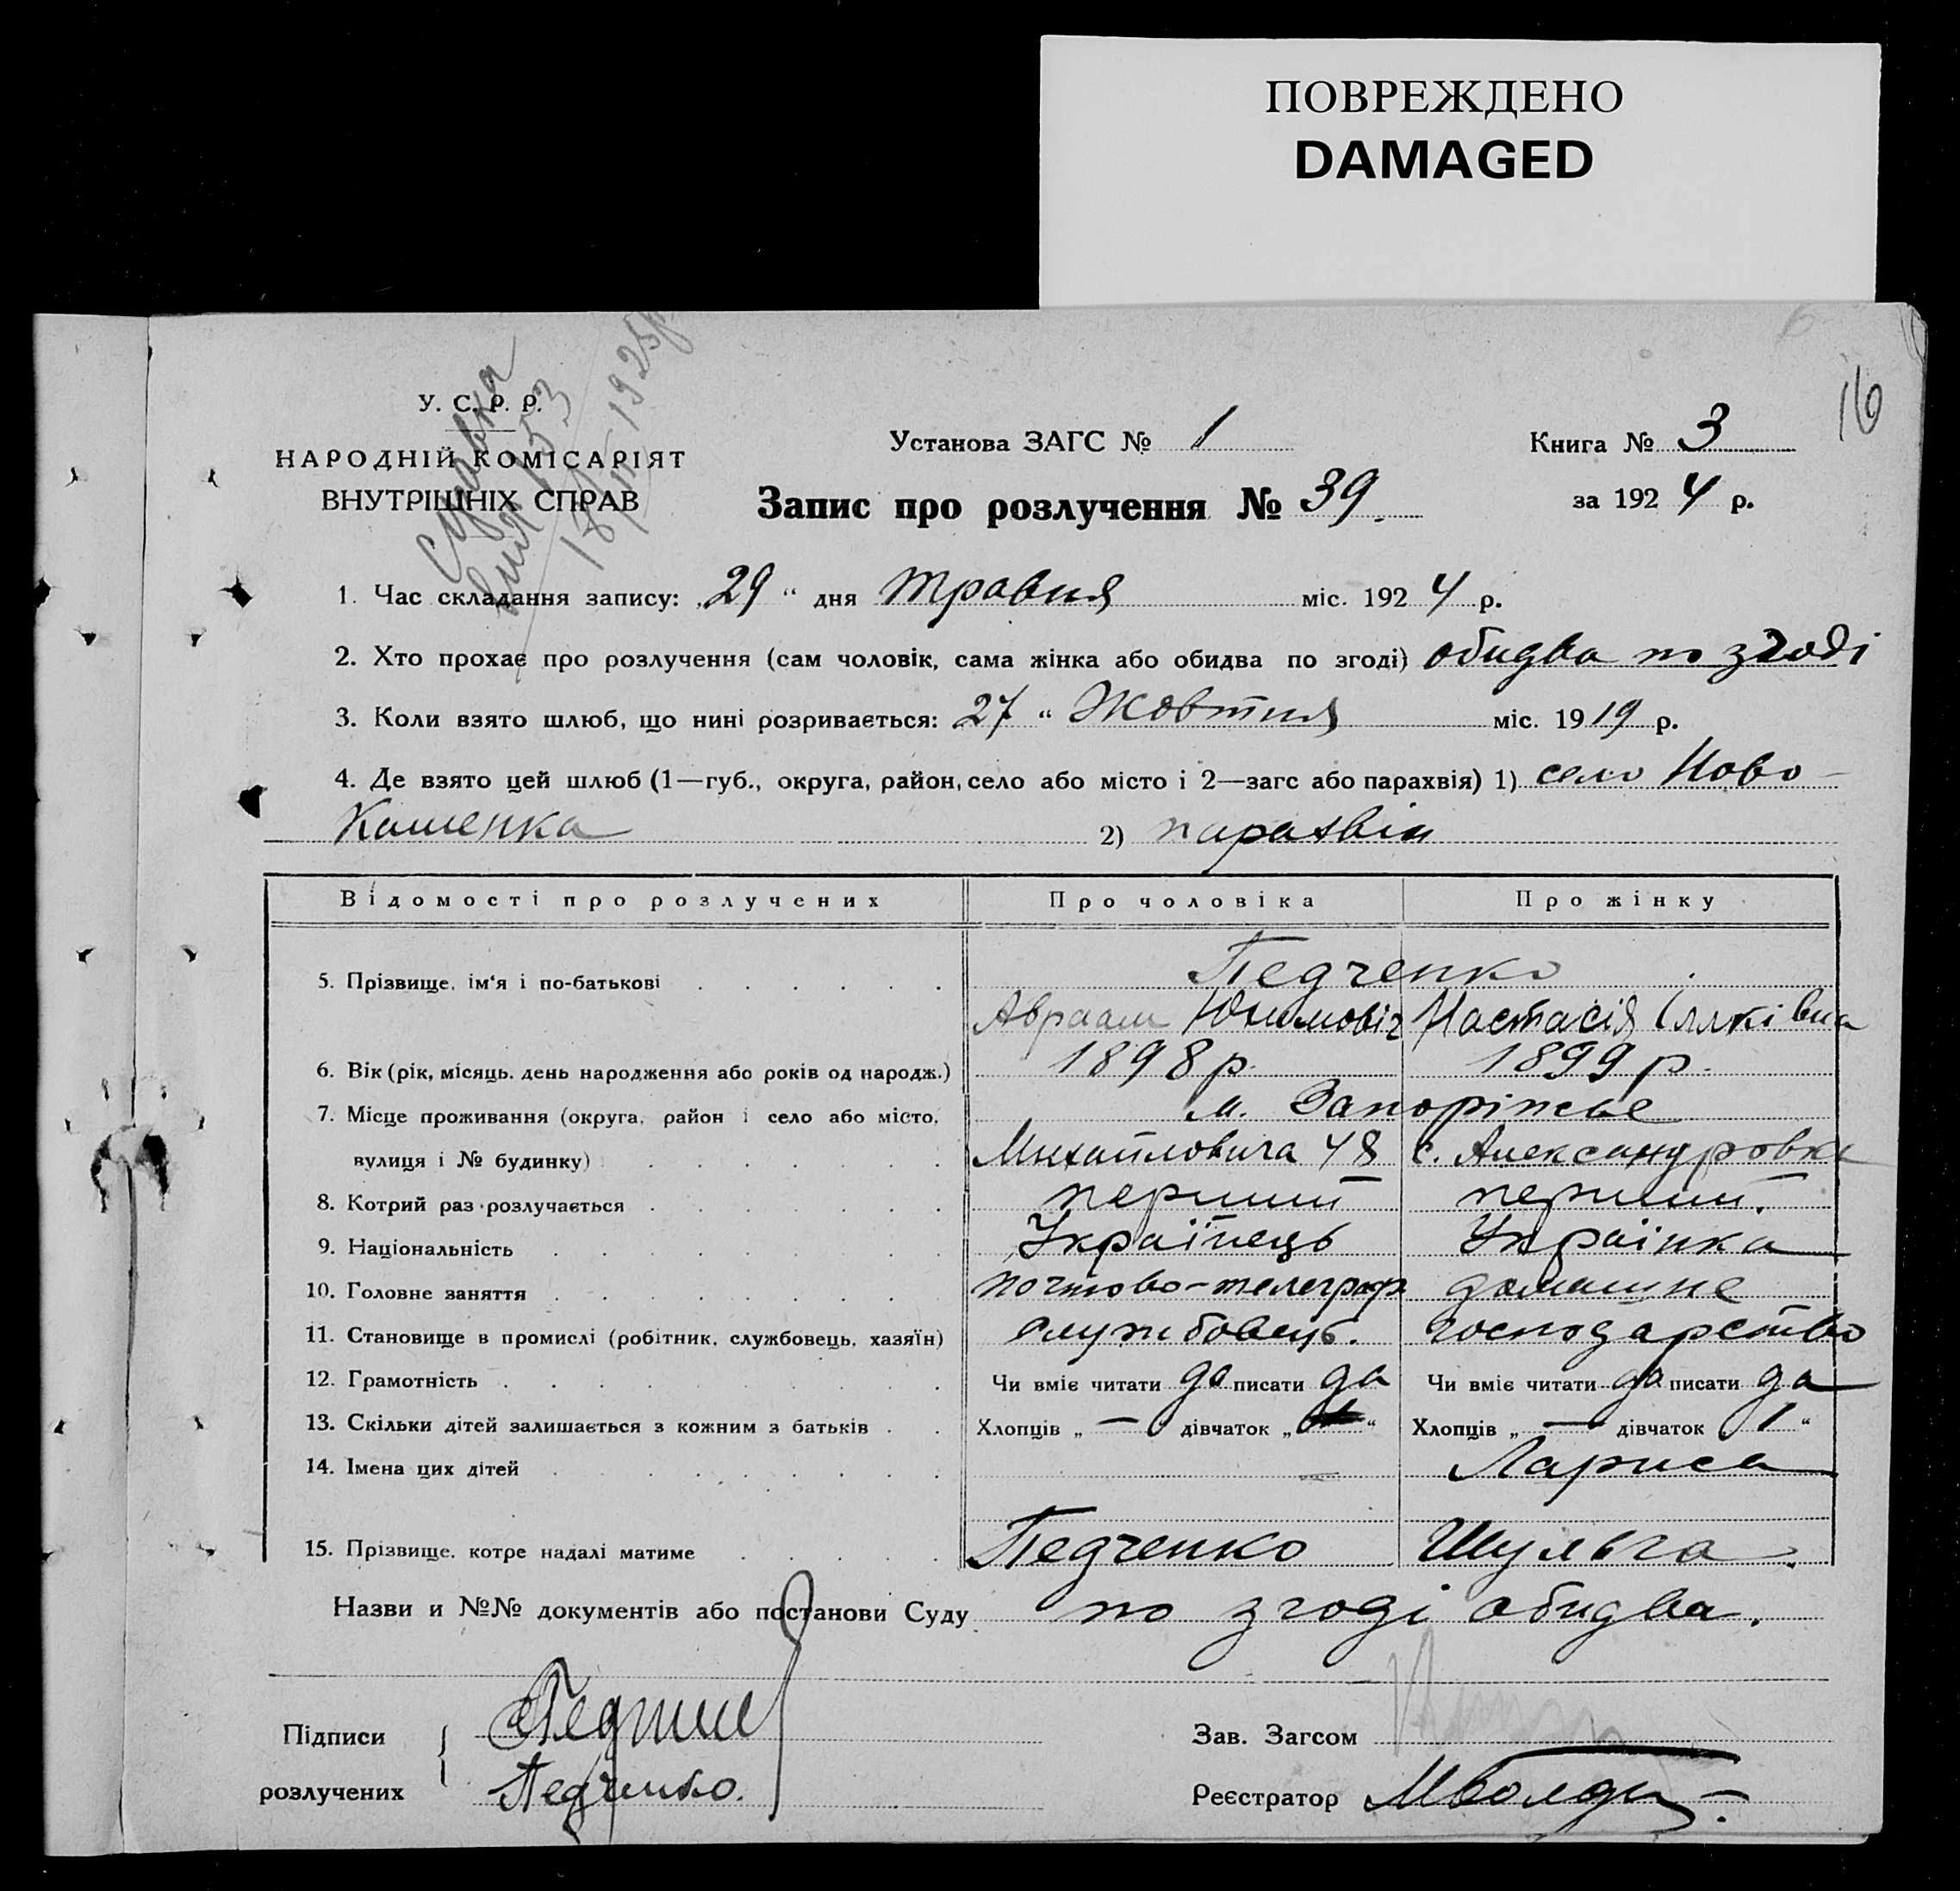 ПОВРЕЖДЕНО
DAMAGED
16
У. С. Р. Р.
НАРОДНІЙ КОМІСАРІЯТ
ВНУТРІШНІХ СПРАВ
справка
153
1925р
Установа ЗАГС № 1
Книга № 3
Запис про розлучення № 39.
за 1924 р.
1. Час складання запису: „29“ дня травня міс. 1924 р.
2. Хто прохає про розлучення (сам чоловік, сама жінка або обидва по згоді) обидва по згоді
3. Коли взято шлюб, що нині розривається: 27 “ Жовтня міс. 1919 р.
4. Де взято цей шлюб (1—губ., округа, район, село або місто і 2—загс або парахвія) 1) село Ново-
Каменка 2) парахвія
Відомості про розлучених Про чоловіка Про жінку
5. Прізвище, ім‘я і по-батькові Педченко
Авраам Юхимовіч Настасія Іллківна
6. Вік (рік, місяць, день народження або років од народж.) 1898 р. 1899 р.
7. Місце проживання (округа, район і село або місто, м. Запоріжьє
вулиця і № будинку) Михайловича 48 с. Александровка
8. Котрий раз розлучається перший перший.
9. Національність Українець Українка
10. Головне заняття почтово-телеграф домашнє
11. Становище в промислі (робітник, службовець, хазяїн) службовець. господарство
12. Грамотність Чи вміє читати да писати да Чи вміє читати да писати да
13. Скільки дітей залишається з кожним з батьків Хлопців „ — “ дівчаток „ “ Хлопців „ — “ дівчаток „ 1 “
14. Імена цих дітей Лариса
15. Прізвище, котре надалі матиме Педченко Шульга.
Назви и №№ документів або постанови Суду по згоді обидва.
Підписи
розлучених Педченко.
Зав. Загсом
Реєстратор